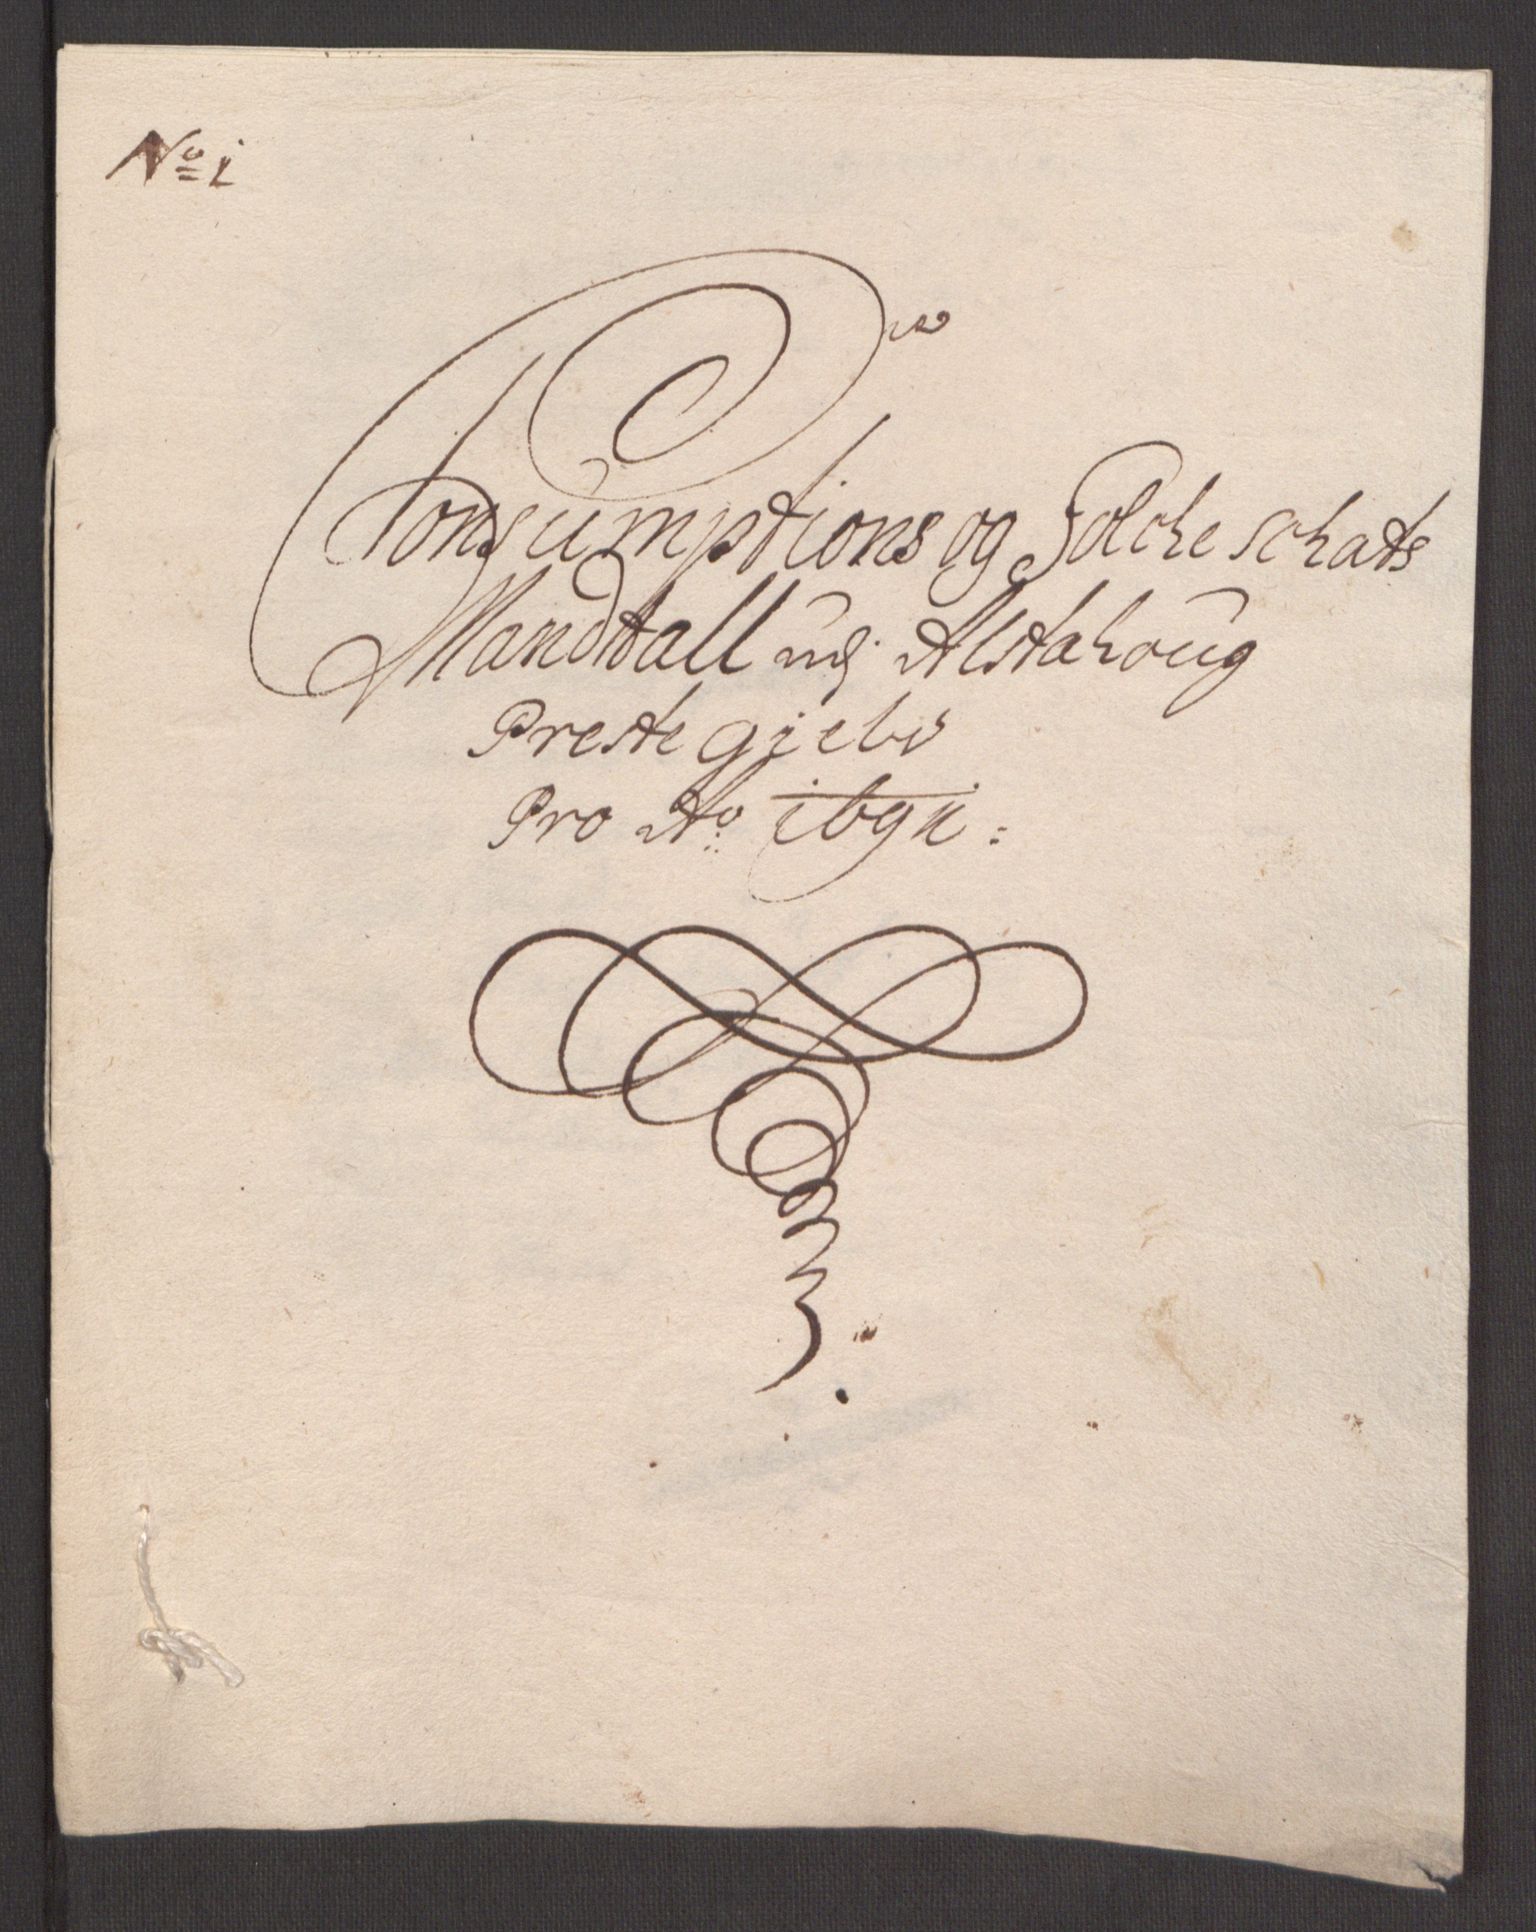 No i
Consumptions og Folcke schats
Mandtall udj Alstahoug
Preste gield
Pro Ao: i69i: